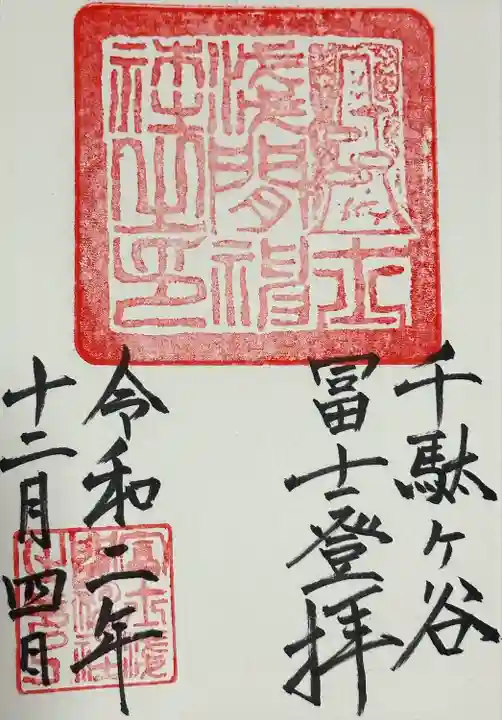 富士
浅間神
社之印
千駄ヶ谷
冨士登拝
令和二年
十二月四日